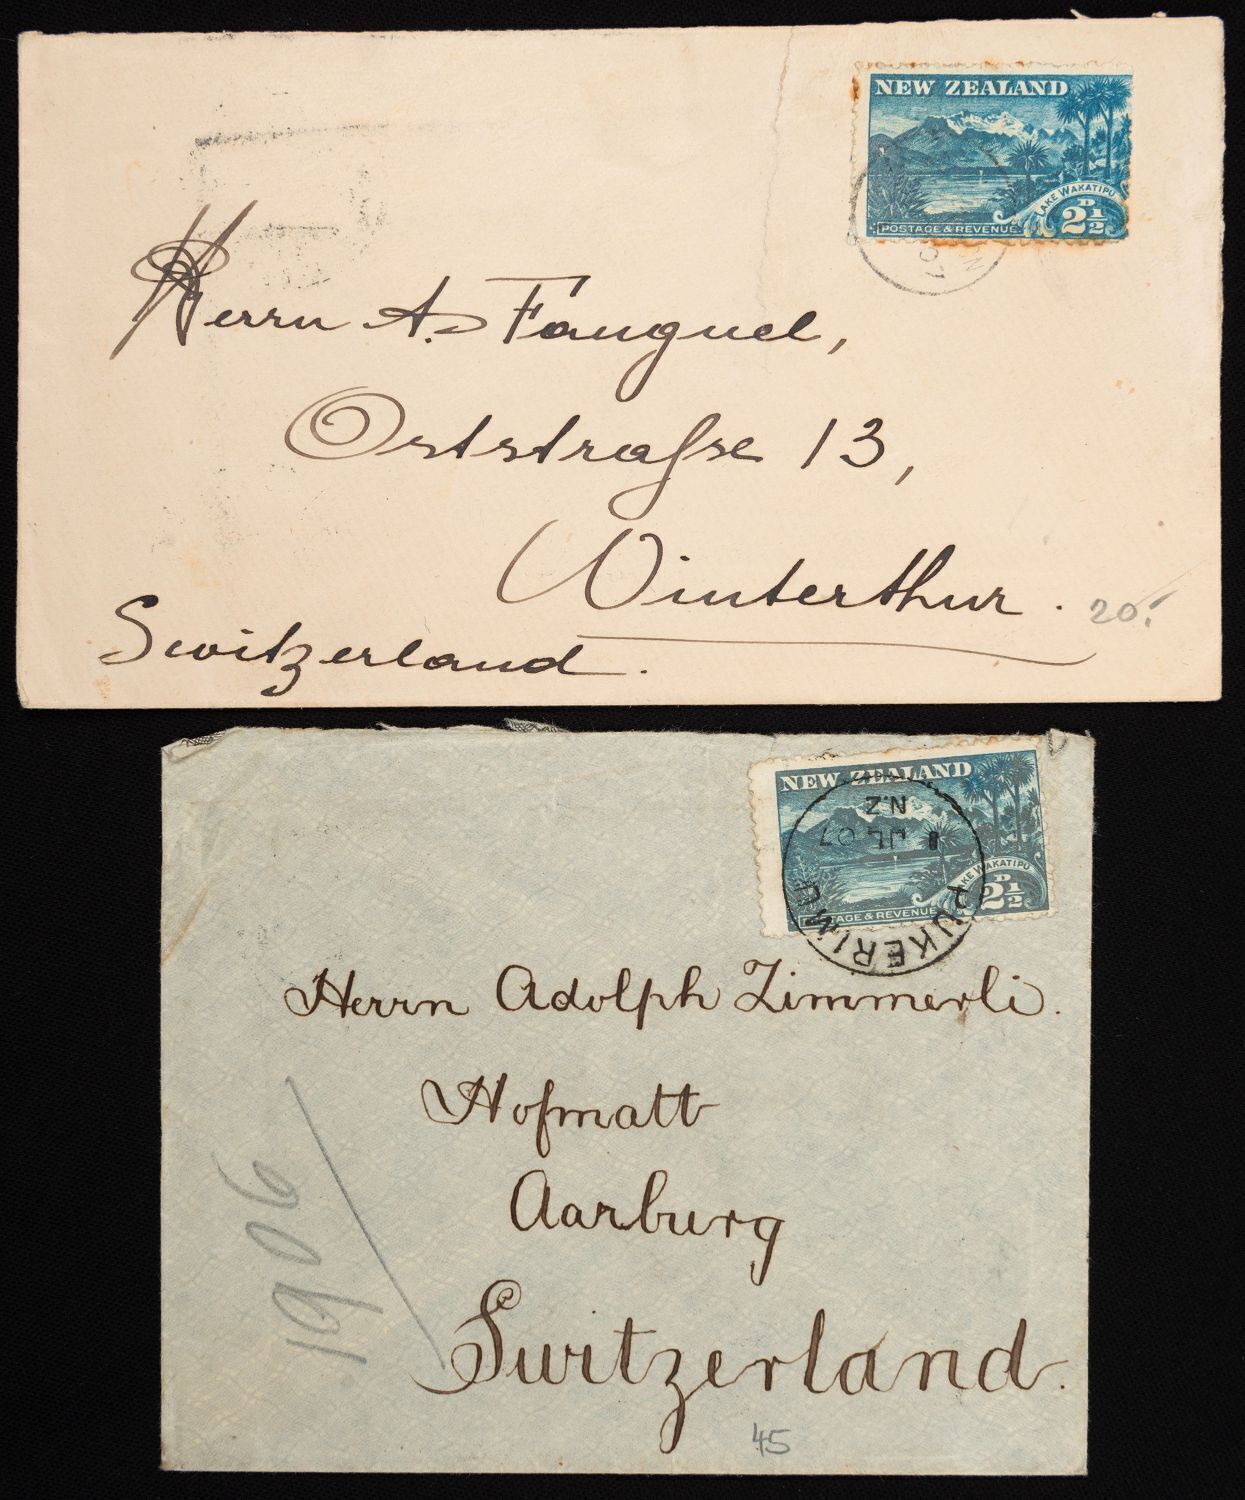 NEW ZEALAND
LAKE WAKATIPU
POSTAGE & REVENUE
2½D
07
Herrn A. Fauquel,
Oststraße 13,
Winterthur.
20.
Switzerland.
NEW ZEALAND
LAKE WAKATIPU
POSTAGE & REVENUE
2½D
PUKERIMU
JL 07
N.Z
Herrn Adolph Zimmerli.
Hofmatt
Aarburg
1906
Switzerland.
45